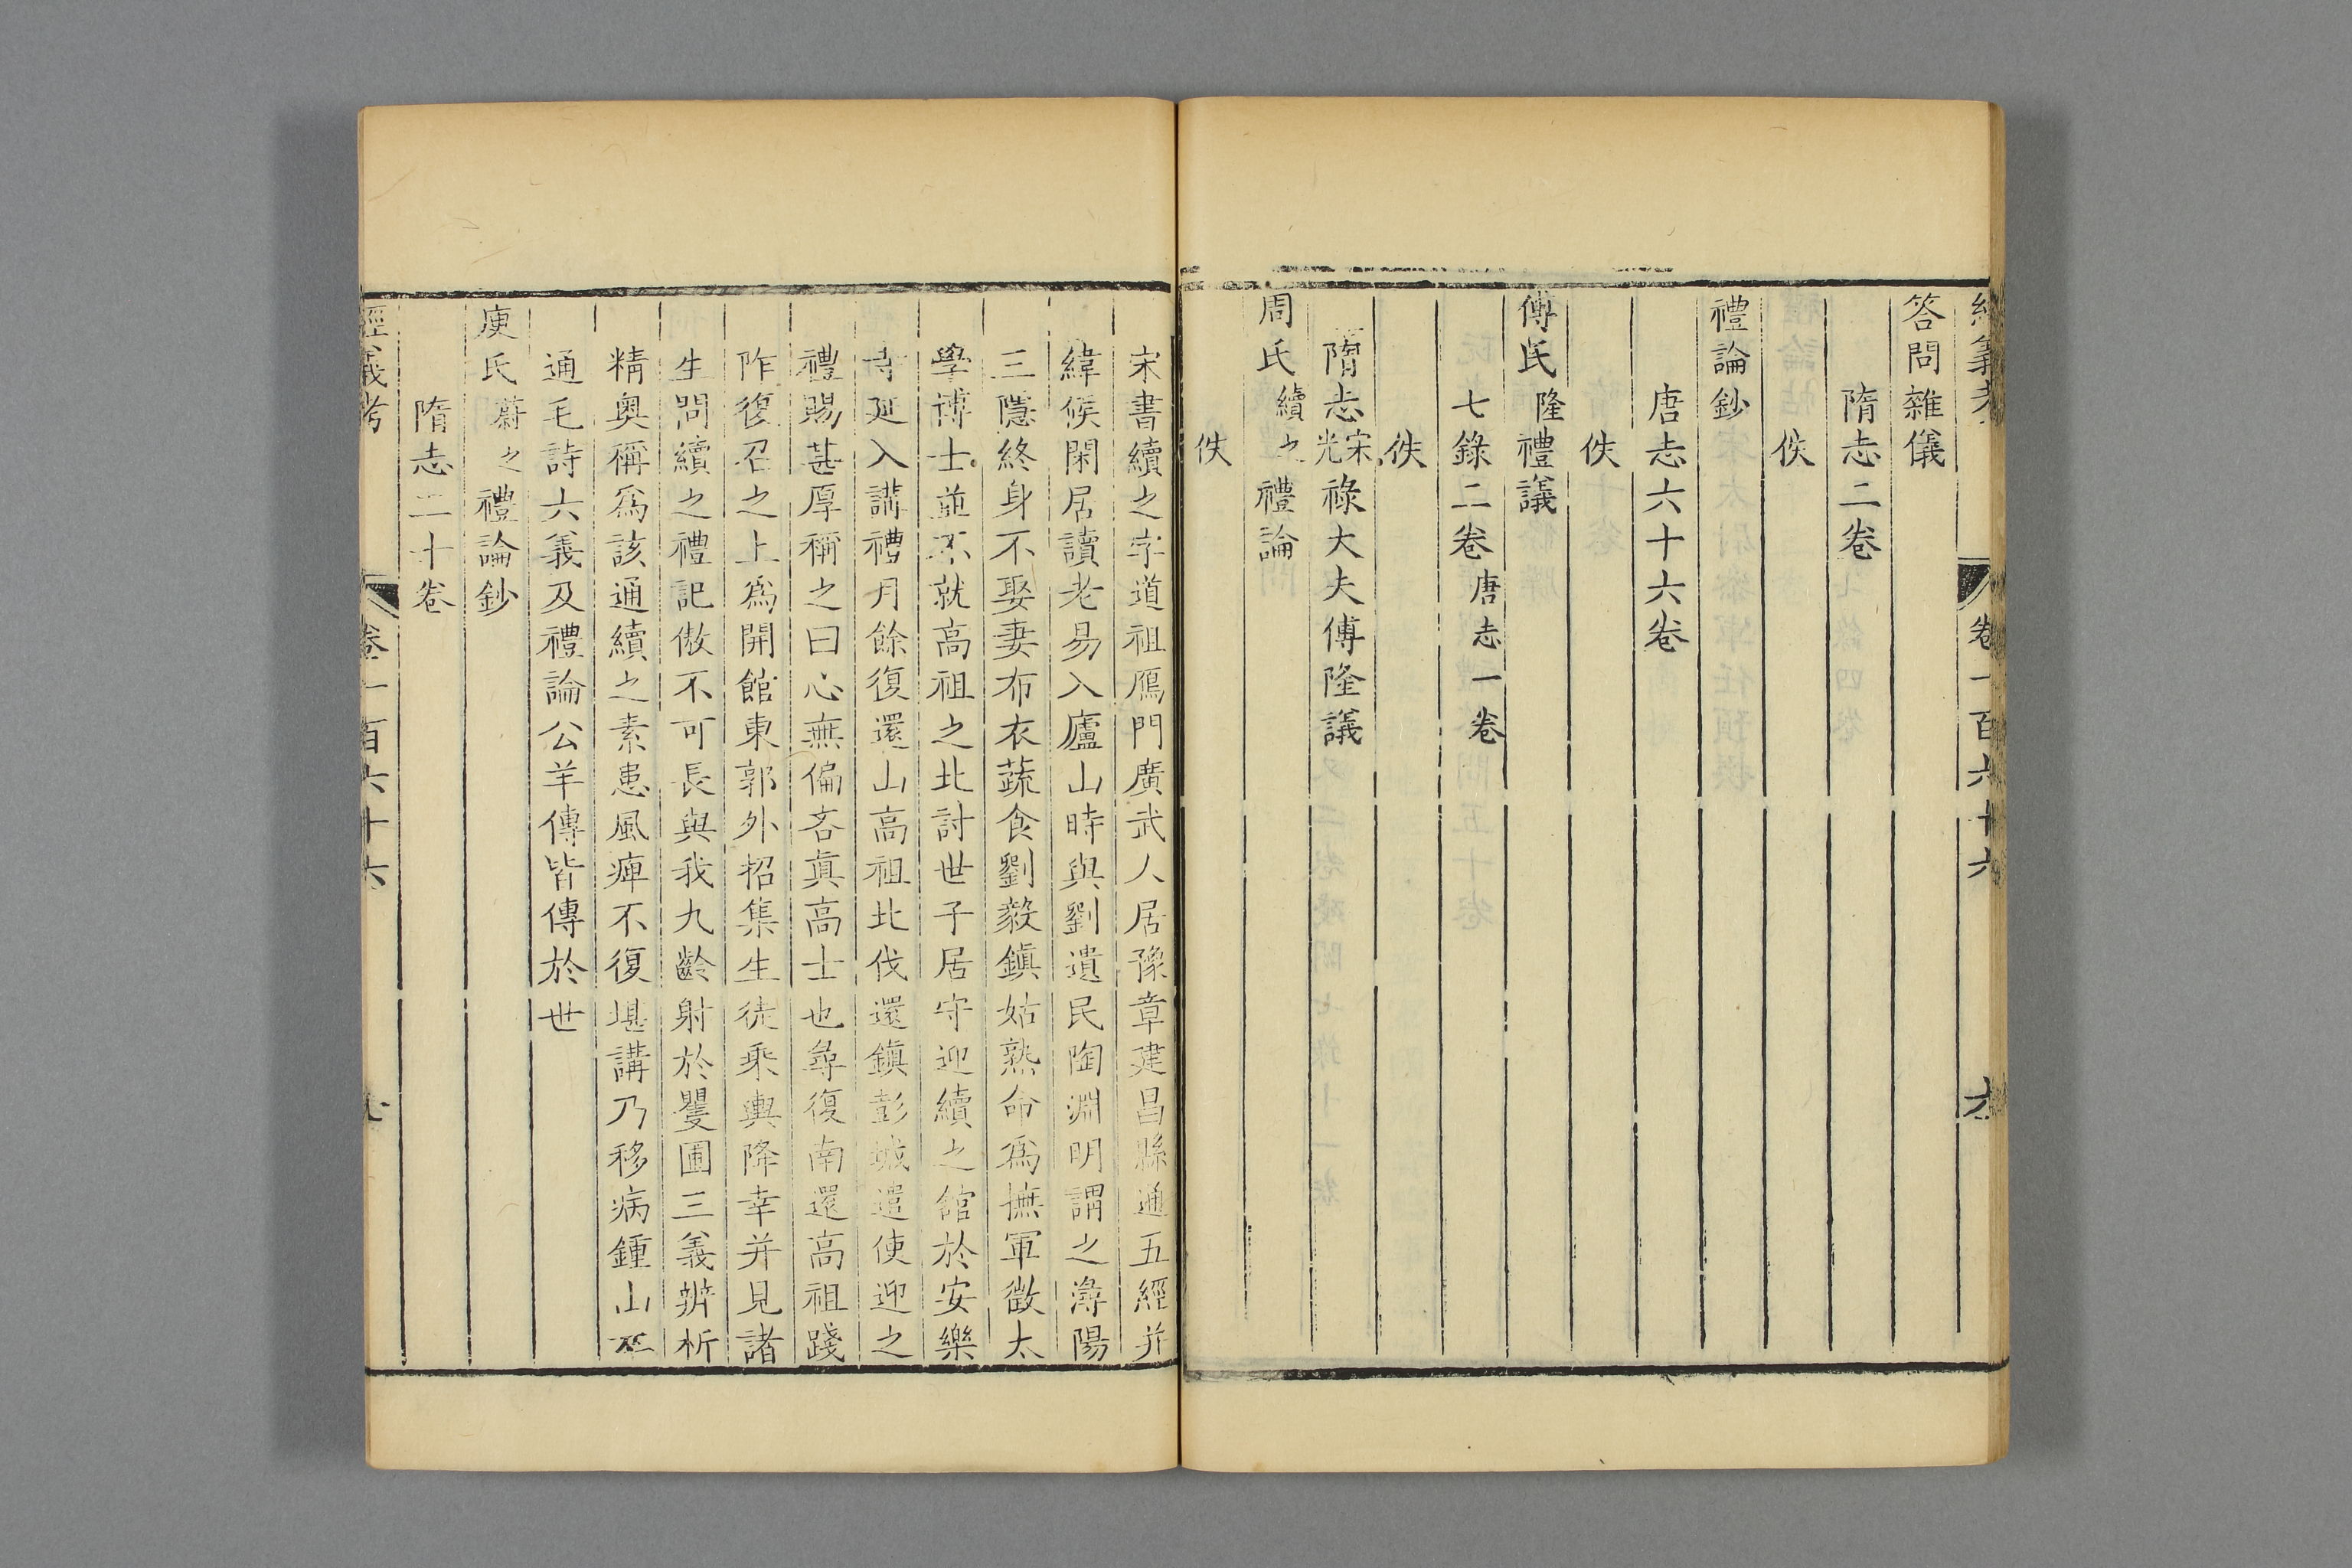 經義考 卷一百六十六 六
答問雜儀
隋志二卷
佚
禮論鈔
唐志六十六卷
佚
傅氏隆禮議
七錄二卷唐志一卷
佚
隋志宋光祿大夫傅隆議
周氏續之禮論
佚
宋書續之字道祖鴈門廣武人居豫章建昌縣通五經并
緯候閑居讀老易入廬山時與劉遺民陶淵明謂之潯陽
三隱終身不娶妻布衣蔬食劉毅鎮姑熟命爲撫軍徵太
學博士並不就高祖之北討世子居守迎續之館於安樂
寺延入講禮月餘復還山高祖北伐還鎮彭城遣使迎之
禮賜甚厚稱之曰心無偏吝眞高士也尋復南還高祖踐
阼復召之上爲開館東郭外招集生徒乘輿降幸并見諸
生問續之禮記傲不可長與我九齡射於矍圃三義辨析
精奧稱爲該通續之素患風痺不復堪講乃移病鍾山卒
通毛詩六義及禮論公羊傳皆傳於世
庾氏蔚之禮論鈔
隋志二十卷
經義考 卷一百六十六 七